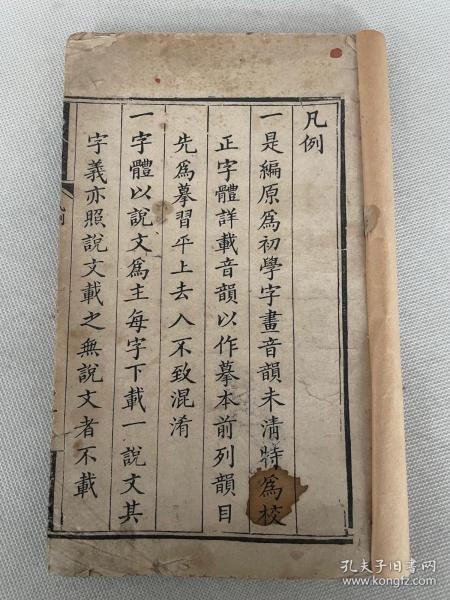 凡例
一是編原爲初學字畫音韻未清特爲校
正字體詳載音韻以作摹本前列韻目
先爲摹習平上去入不致混淆
一字體以說文爲主每字下載一說文其
字義亦照說文載之無說文者不載
孔夫子旧书网
www.kongfz.com